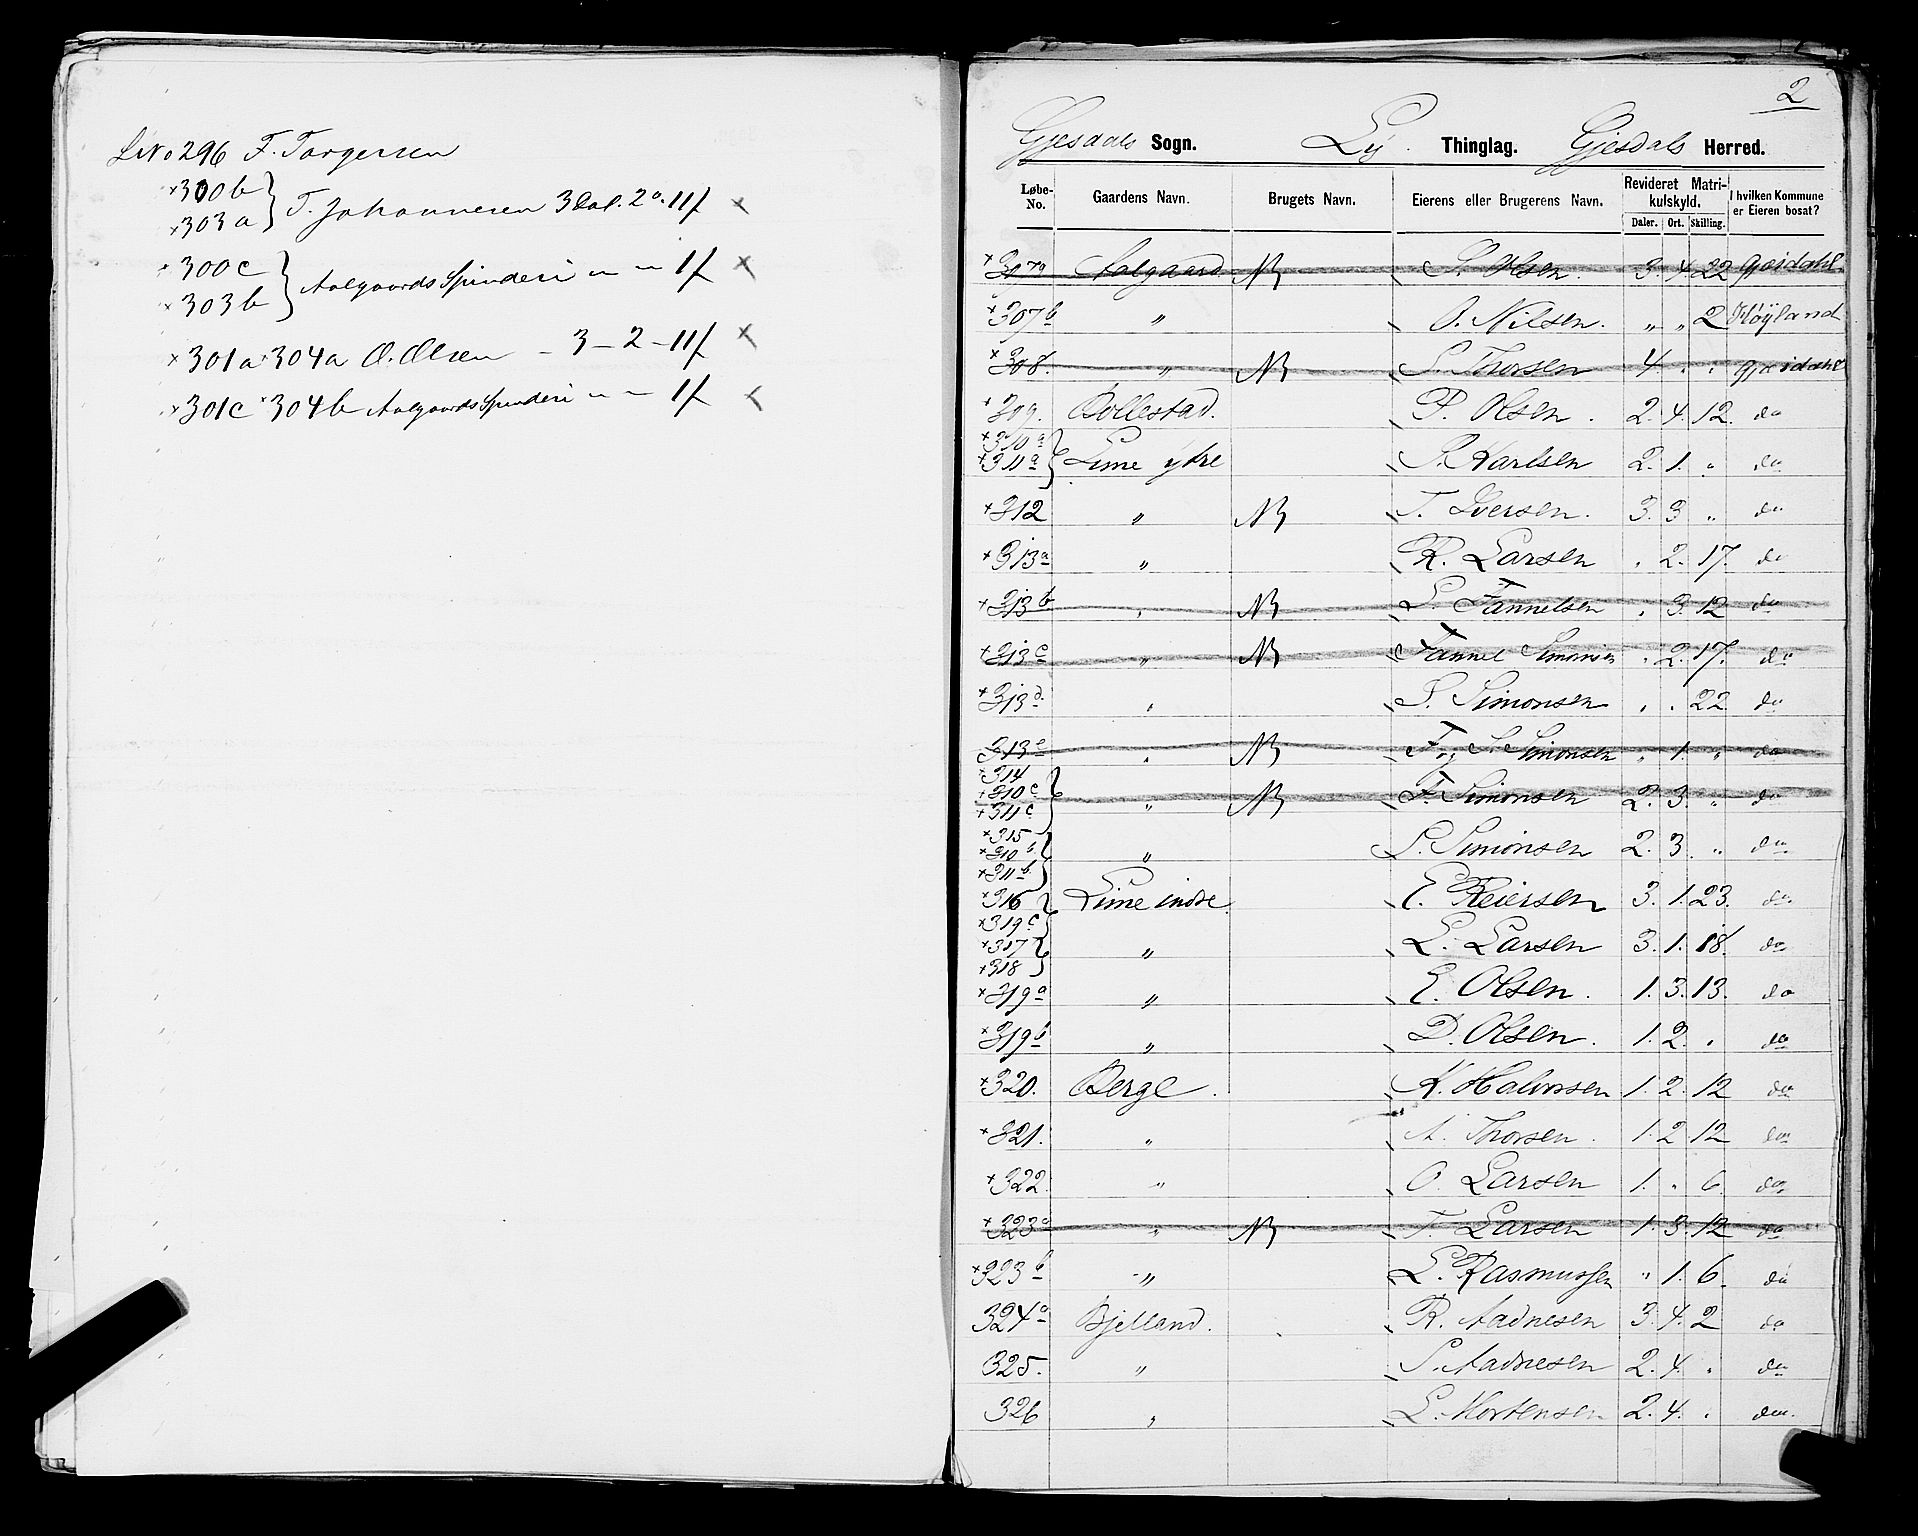 LNo 296 F. Torgersen
×300b
×303a } T. Johannesen 3 Dal. 2 o. 11 ſ ×
×300c
×303b } Aalgaards Spinderi " – " – 1 ſ ×
×301a ×304a O. Olsen – 3 – 2 – 11 ſ ×
×301c ×304b Aalgaards Spinderi " – " – 1 ſ ×
2
Gjesdals Sogn. Ly Thinglag. Gjesdals Herred.
Løbe-No. Gaardens Navn. Brugets Navn. Eierens eller Brugerens Navn. Revideret Matrikulskyld. I hvilken Kommune er Eieren bosat?
Daler. Ort. Skilling.
×307a Aalgaard NB S. Olsen. 3. 4. 22 Gjesdahl
×307b " O. Nilsen. " " 2 Høyland
×308. " NB S. Thorsen 4 " " Gjesdahl
×309. Bollestad. P. Olsen. 2. 4. 12. do
×310a
×311a } Lime ytre P. Karlsen 2. 1. " do
×312 " NB T. Iversen. 3. 3 " do
×313a " R. Larsen " 2. 17. do
×313b " NB S. Fannelsen " 3. 12 do
×313c " NB Fannel Simonsen " 2. 17. do
×313d " S. Simonsen " " 22 do
313e " NB F og S. Simonsen " 1. " do
×314
×310c
×311c } " NB F. Simonsen 2. 3. " do
×315
×310b
×311b } " S. Simonsen 2. 3. " do
×316
×319c } Lime indre E. Reiersen 3. 1. 23. do
×317
×318 } " L. Larsen 3. 1. 18. do
×319a " E. Olsen. 1. 3. 13. do
×319b " D. Olsen. 1. 2. " do
×320. Berge. K. Halvorsen 1. 2. 12 do
×321. " A. Thorsen. 1. 2 12 do
×322. " O. Larsen 1. " 6. do
×323a " NB T. Larsen 1. 3. 12 do
×323b " L. Rasmussen " 1. 6. do
324a Bjelland. R. Aadnesen 3. 4. 2 do
325. " S. Aadnesen 2. 4. " do
326 " L. Mortensen 2. 4. " do.